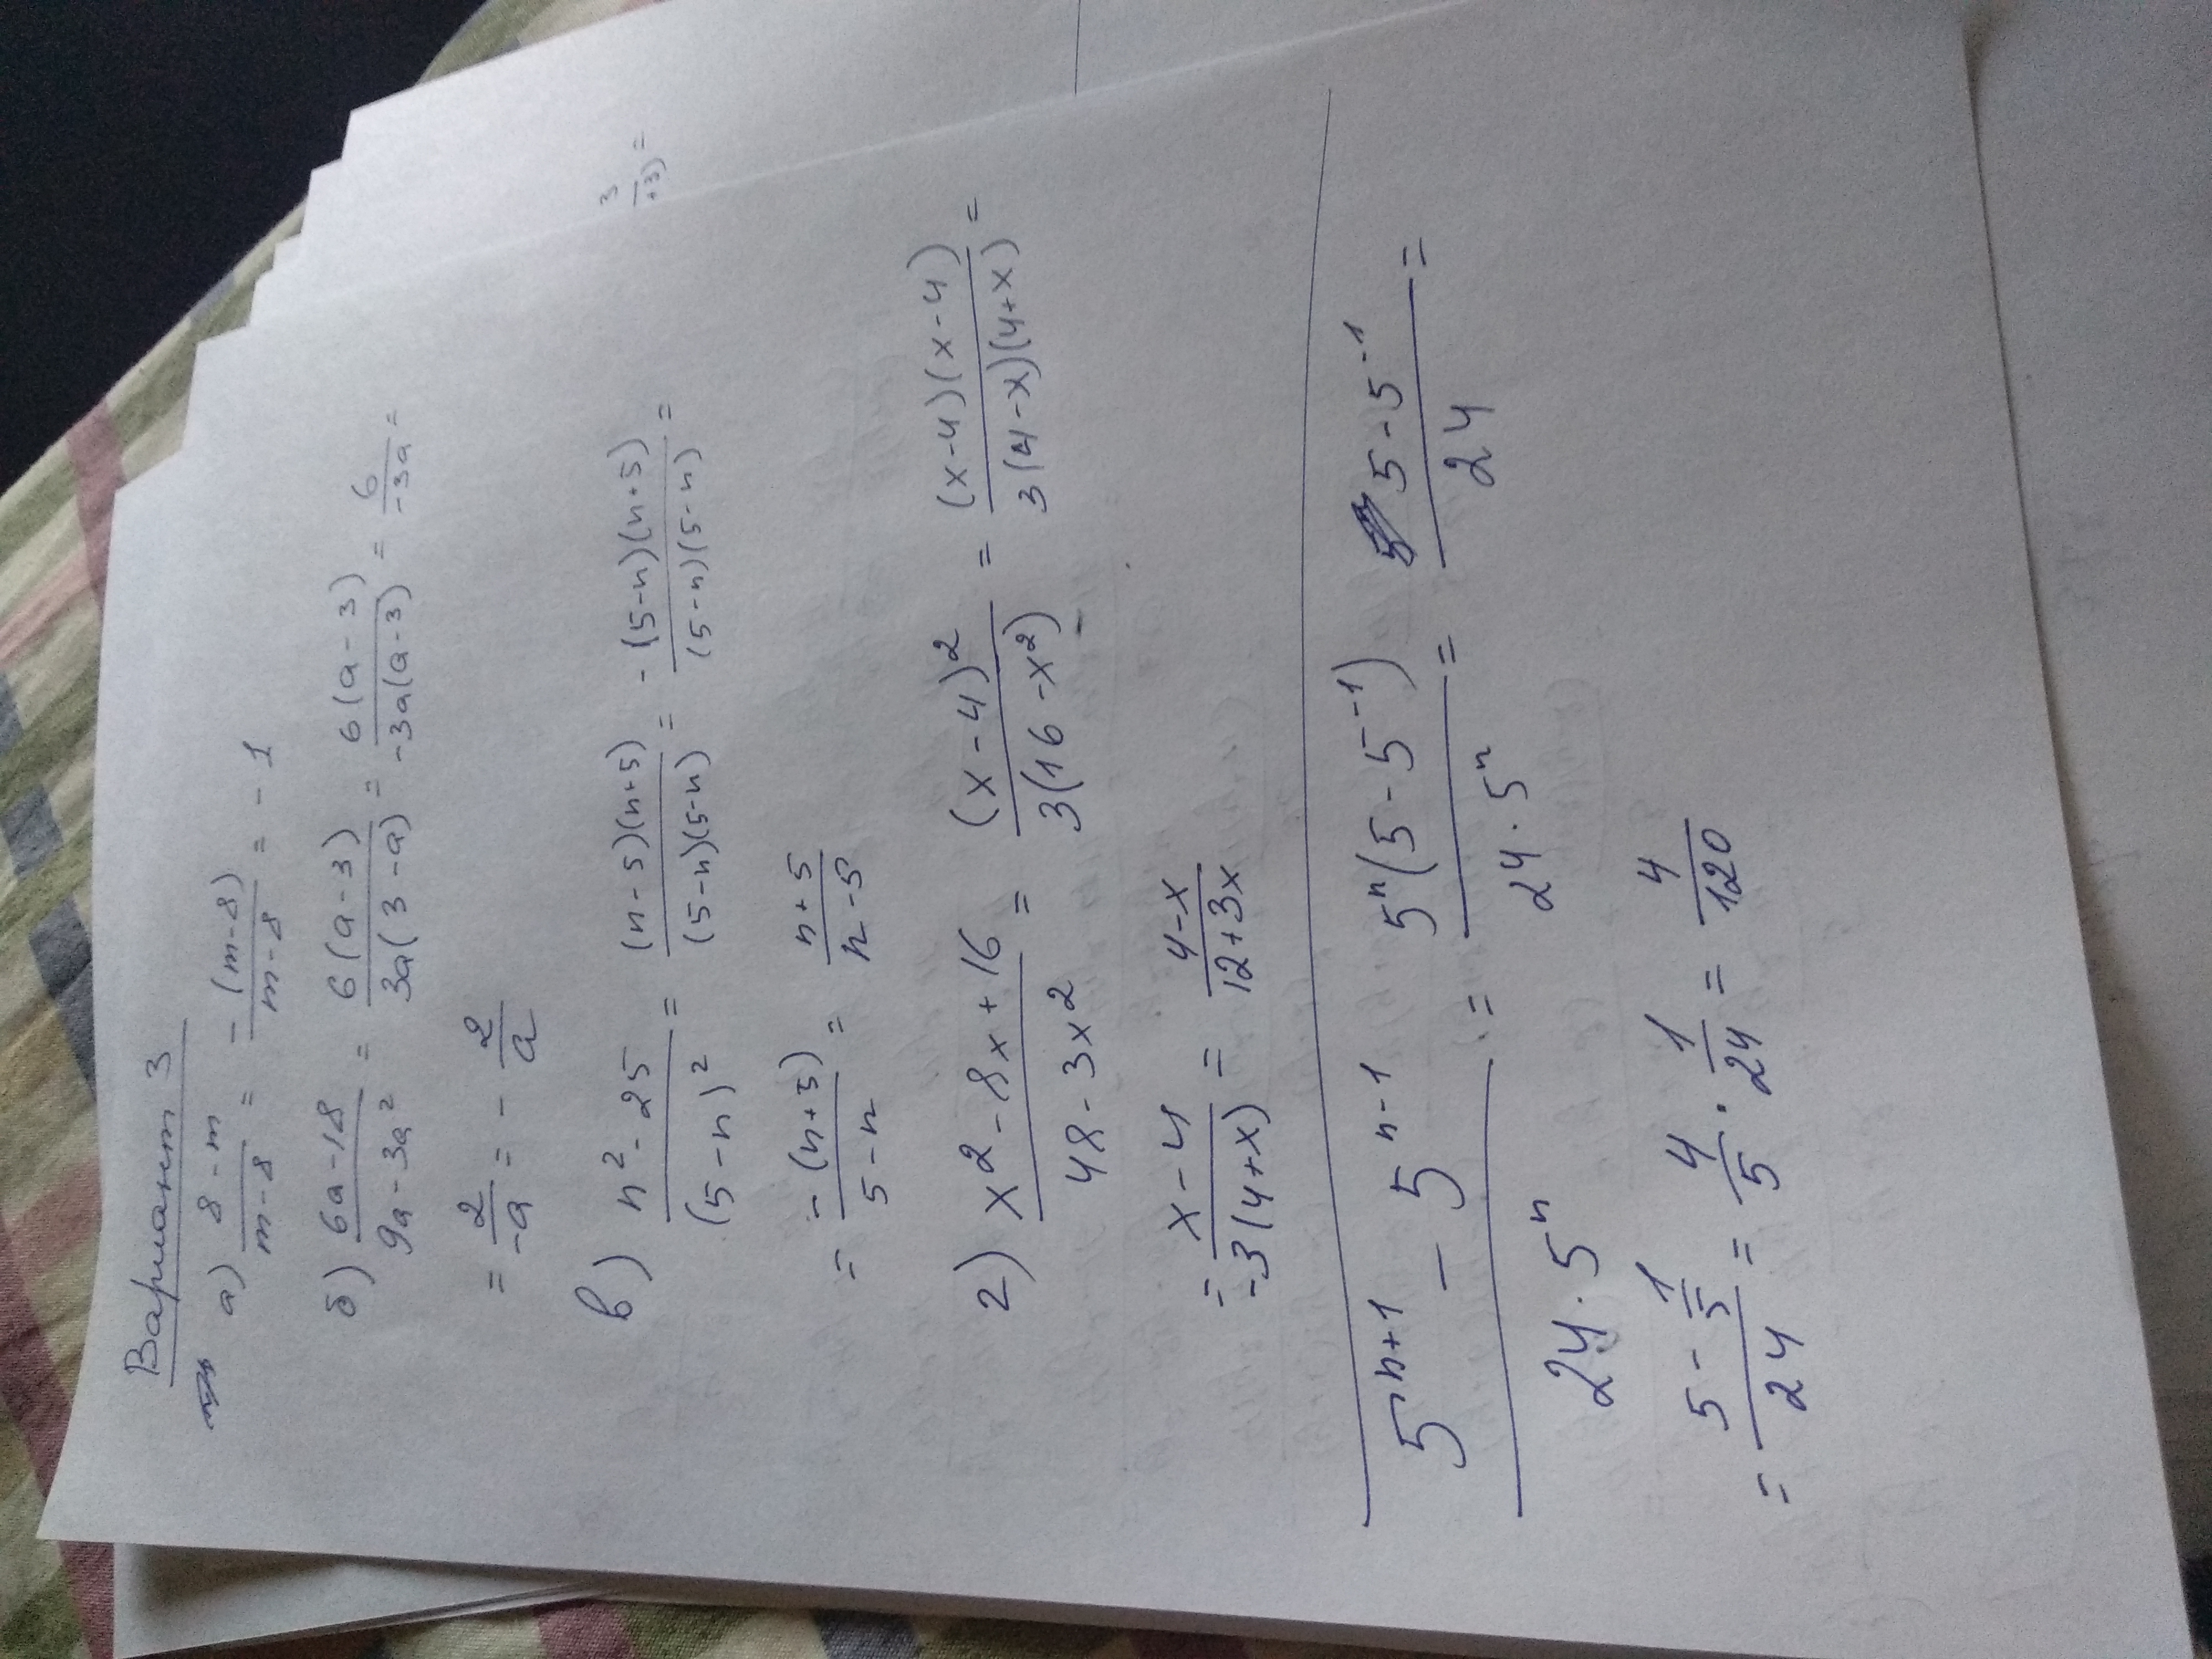 Вариант 3
а) (8-m)/(m-8) = -(m-8)/(m-8) = -1
б) (6a-18)/(9a-3a²) = 6(a-3)/3a(3-a) = 6(a-3)/-3a(a-3) = 6/-3a =
= 2/-a = -2/a
в) (n²-25)/(5-n)² = (n-5)(n+5)/(5-n)(5-n) = -(5-n)(n+5)/(5-n)(5-n) =
= -(n+5)/(5-n) = (n+5)/(n-5)
г) (x²-8x+16)/(48-3x²) = (x-4)²/3(16-x²) = (x-4)(x-4)/3(4-x)(4+x) =
= (x-4)/-3(4+x) = (4-x)/(12+3x)
(5ⁿ⁺¹ - 5ⁿ⁻¹)/(24·5ⁿ) = 5ⁿ(5-5⁻¹)/(24·5ⁿ) = (5-5⁻¹)/24 =
= (5-1/5)/24 = 4/5 · 1/24 = 4/120
3/+3) =